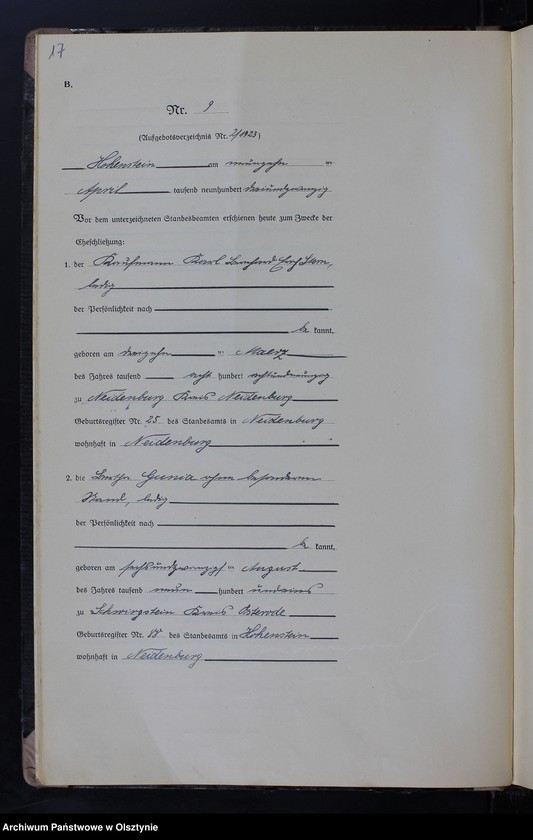 17
B.
Nr. 9
(Aufgebotsverzeichnis Nr. 2/1923)
Hohenstein am neunzehn ten
April tausend neunhundert dreiundzwanzig
Vor dem unterzeichneten Standesbeamten erschienen heute zum Zwecke der
Eheschließung:
1. der Kaufmann Karl Bernhard
ledig
der Persönlichkeit nach
be kannt,
geboren am dreizehn ten Maerz
des Jahres tausend acht hundert achtundneunzig
zu Neidenburg Kreis Neidenburg
Geburtsregister Nr. 25 des Standesamts in Neidenburg
wohnhaft in Neidenburg
2. die Bertha Gunia ohne besonderen
Stand, ledig
der Persönlichkeit nach
be kannt,
geboren am sechsundzwanzigsten August
des Jahres tausend neun hundert undeins
zu Schwirgstein Kreis Osterode
Geburtsregister Nr. des Standesamts in Hohenstein
wohnhaft in Neidenburg
Archiwum Państwowe w Olsztynie